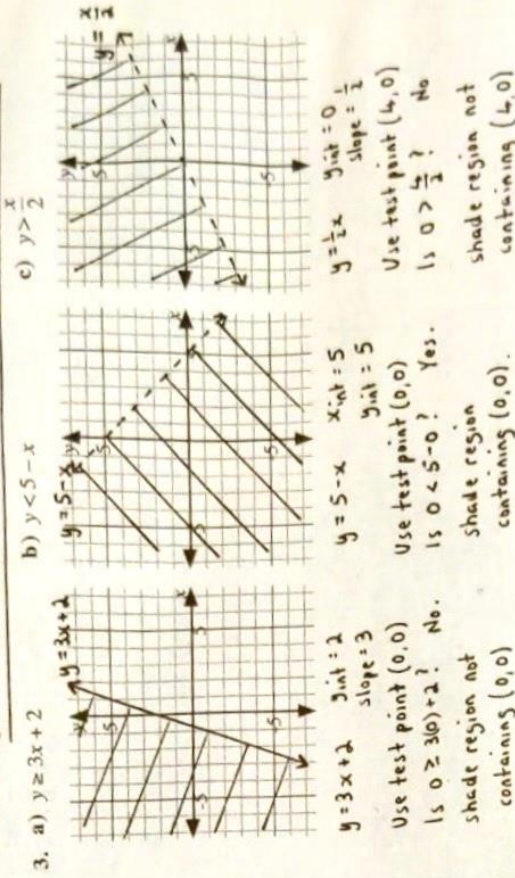 3. a) y ≥ 3x + 2
y = 3x + 2
y
5
x
-5
5
-5
y = 3x + 2 yint = 2
slope = 3
Use test point (0,0)
Is 0 ≥ 3(0) + 2? No.
shade region not
containing (0,0)
b) y < 5 − x
y = 5 - x
y
5
x
-5
5
-5
y = 5 - x xint = 5
yint = 5
Use test point (0,0)
Is 0 < 5 - 0? Yes.
shade region
containing (0,0).
c) y > x/2
y = x/2
y
5
x
-5
5
-5
y = 1/2 x yint = 0
slope = 1/2
Use test point (4,0)
Is 0 > 4/2? No
shade region not
containing (4,0)